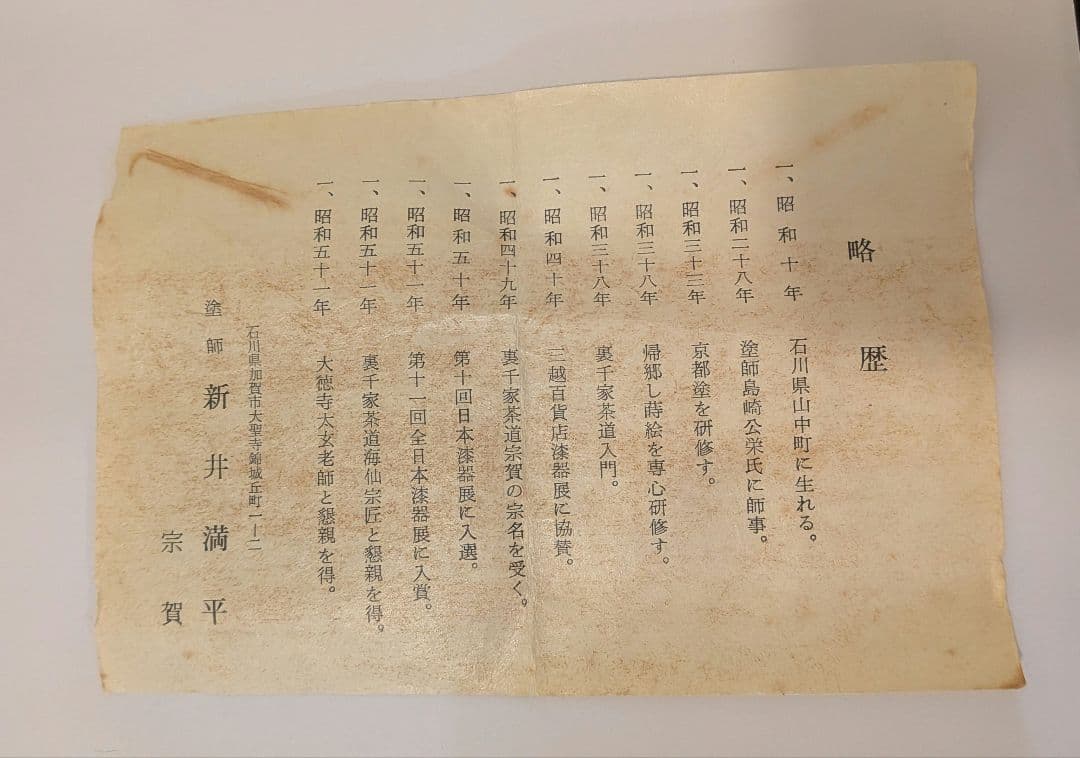 略歴
一、昭和十年 石川県山中町に生れる。
一、昭和二十八年 塗師島崎公栄氏に師事。
一、昭和三十三年 京都塗を研修す。
一、昭和三十八年 帰郷し蒔絵を専心研修す。
一、昭和三十八年 裏千家茶道入門。
一、昭和四十年 三越百貨店漆器展に協賛。
一、昭和四十九年 裏千家茶道宗賀の宗名を受く。
一、昭和五十年 第十回日本漆器展に入選。
一、昭和五十一年 第十一回全日本漆器展に入賞。
一、昭和五十一年 裏千家茶道海仙宗匠と懇親を得。
一、昭和五十一年 大徳寺太玄老師と懇親を得。
石川県加賀市大聖寺錦城丘町一ー二
塗師 新井満平
宗賀